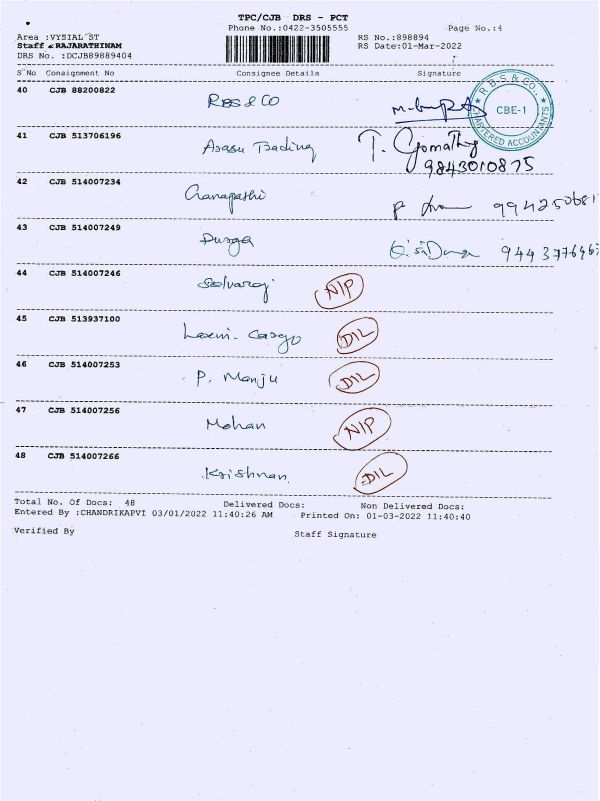 TPC/CJB DRS - PCT
Phone No.:0422-3505555 Page No.:4
Area :VYSIAL ST RS No.:898894
Staff :RAJARATHINAM RS Date:01-Mar-2022
DRS No. :DCJB89889404
S No Consignment No Consignee Details Signature
40 CJB 88200822 RBS & CO
R.B.S. & CO., CBE-1 CHARTERED ACCOUNTANTS
41 CJB 513706196 Arasu Trading T. Gomathy
9843010875
42 CJB 514007234 Ganapathi
43 CJB 514007249 Durga
44 CJB 514007246 Selvaraj NIP
45 CJB 513937100 Laxmi-Cargo DIL
46 CJB 514007253 P. Manju DIL
47 CJB 514007256 Mohan NIP
48 CJB 514007266 Krishnan DIL
Total No. Of Docs: 48 Delivered Docs: Non Delivered Docs:
Entered By :CHANDRIKAPVI 03/01/2022 11:40:26 AM Printed On: 01-03-2022 11:40:40
Verified By Staff Signature